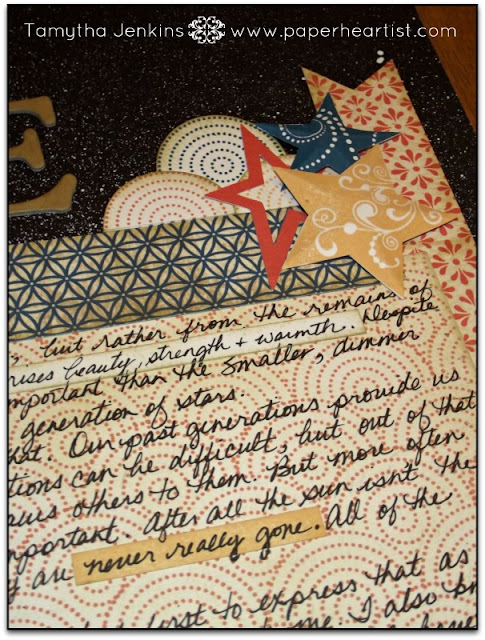 Tamytha Jenkins www.paperheartist.com
E
but rather from the remains of
rises beauty, strength + warmth. Despite
mportant than the smaller, dimmer
generation of stars.
hat. Our past generations provide us
tions can be difficult, but out of that
others to them. But more often
mportant. After all the sun isn't the
y are never really gone. All of the
to express that as
me. I also kn
have